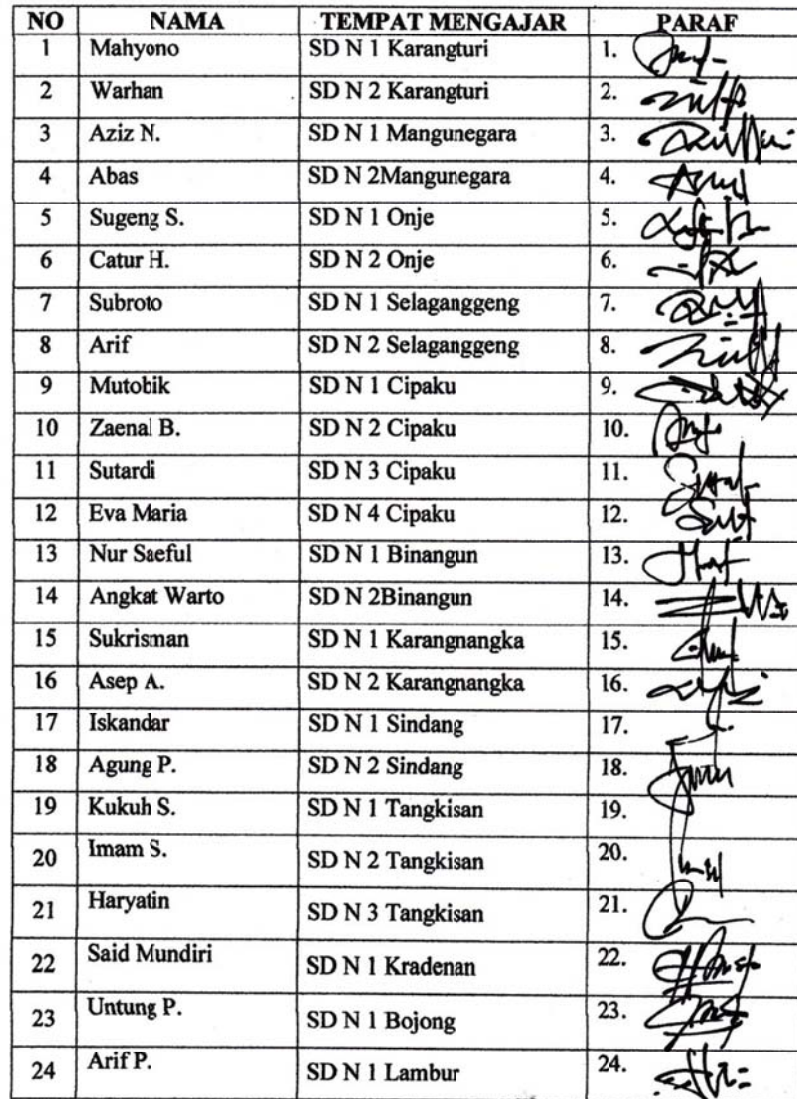 NO NAMA TEMPAT MENGAJAR PARAF
1 Mahyono SD N 1 Karangturi 1.
2 Warhan SD N 2 Karangturi 2.
3 Aziz N. SD N 1 Mangunegara 3.
4 Abas SD N 2Mangunegara 4.
5 Sugeng S. SD N 1 Onje 5.
6 Catur H. SD N 2 Onje 6.
7 Subroto SD N 1 Selaganggeng 7.
8 Arif SD N 2 Selaganggeng 8.
9 Mutobik SD N 1 Cipaku 9.
10 Zaenal B. SD N 2 Cipaku 10.
11 Sutardi SD N 3 Cipaku 11.
12 Eva Maria SD N 4 Cipaku 12.
13 Nur Saeful SD N 1 Binangun 13.
14 Angkat Warto SD N 2Binangun 14.
15 Sukrisman SD N 1 Karangnangka 15.
16 Asep A. SD N 2 Karangnangka 16.
17 Iskandar SD N 1 Sindang 17.
18 Agung P. SD N 2 Sindang 18.
19 Kukuh S. SD N 1 Tangkisan 19.
20 Imam S. SD N 2 Tangkisan 20.
21 Haryatin SD N 3 Tangkisan 21.
22 Said Mundiri SD N 1 Kradenan 22.
23 Untung P. SD N 1 Bojong 23.
24 Arif P. SD N 1 Lambur 24.